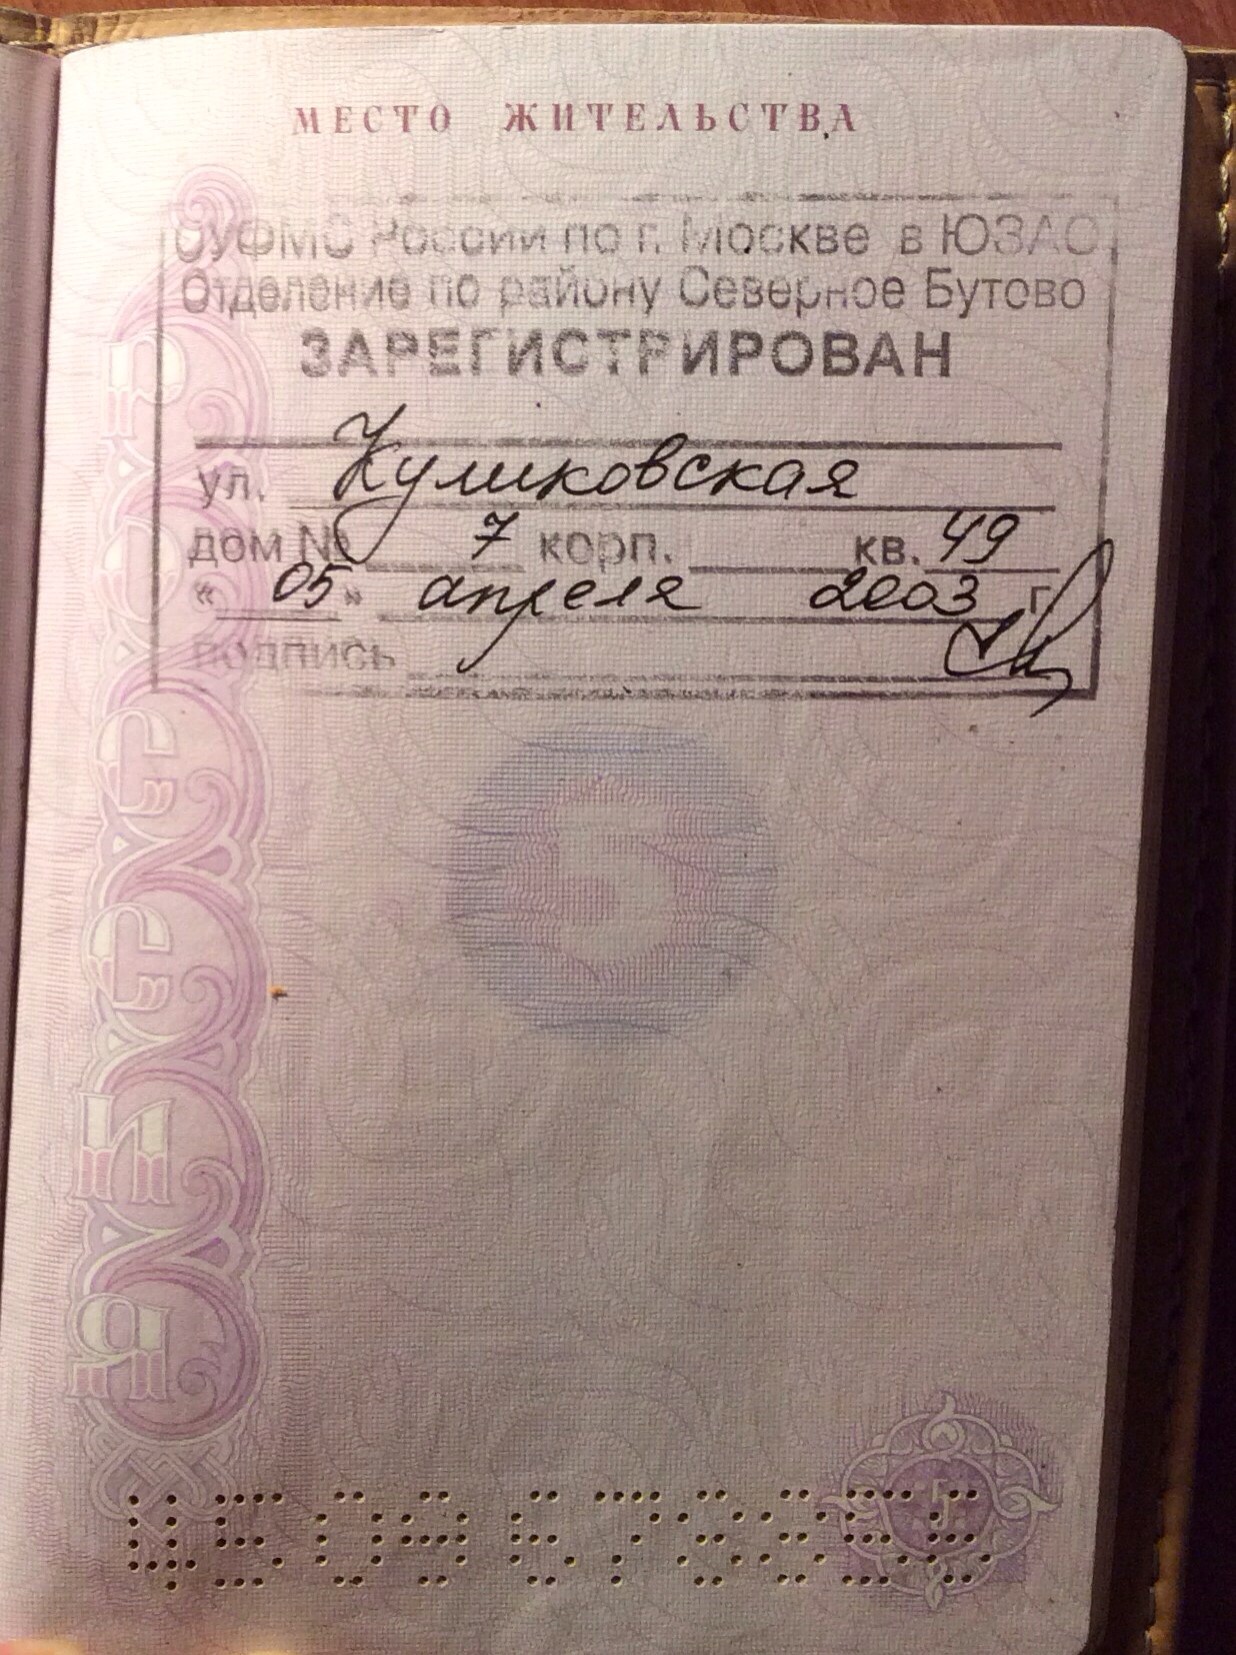 МЕСТО ЖИТЕЛЬСТВА
ОУФМС России по г. Москве в ЮЗАО
Отделение по району Северное Бутово
ЗАРЕГИСТРИРОВАН
ул. Куликовская
дом № 7 корп. кв. 49
« 05 » апреля 2003 г.
подпись
РОССИЯ
5
5